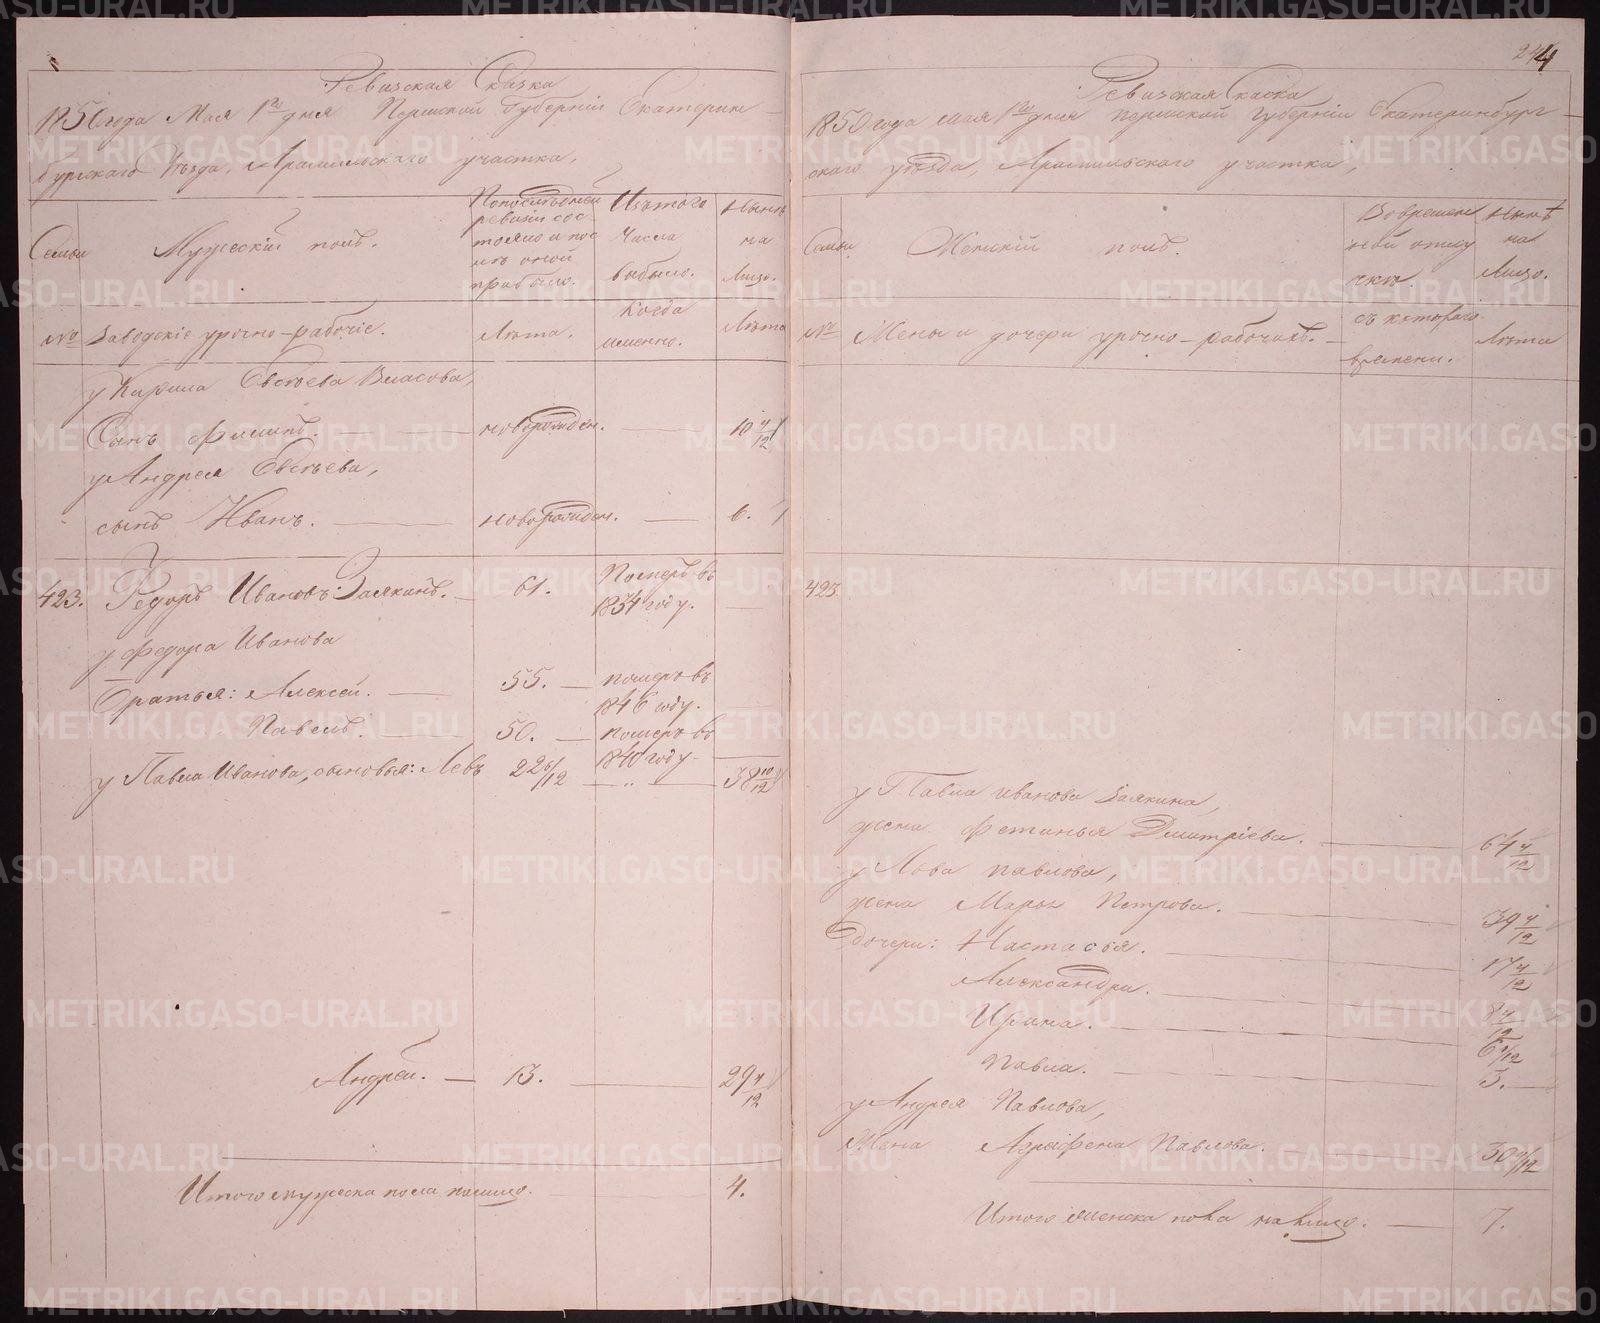 Ревизская Сказка
1850 года Мая 1го дня Пермской Губернiи Екатерин-
бургского Уѣзда, Арамильского участка,
Семьи
Мужескiй полъ.
По последней ревизiи состояло и послѣ оной прибыло.
Изъ того числа выбыло.
Нынѣ на лицо.
№
Заводскiе урочно-рабочiе.
Лѣта.
Когда именно.
Лѣта
у Кирила Евсѣева Власова,
Сынъ Филипъ. новорожден. 10 4/12
у Андрея Евсѣева,
сынъ Иванъ. новорожден. 6.
423. Федоръ Ивановъ Заякинъ. 61. Померъ въ
1834 году.
у Федора Иванова
братья: Алексей. 55. померъ въ
1846 году.
Павелъ. 50. померъ въ
1840 году.
у Павла Иванова, сыновья: Левъ 22 6/12 38 10/12
Андрей. 13. 29 4/12
Итого мужеска пола на лицо. 4.
244
Ревизская Сказка
1850 года Мая 1го дня Пермской Губернiи Екатеринбург-
ского уѣзда, Арамильского участка,
Семьи.
Женскiй полъ.
Во временной отлучкѣ.
Нынѣ на лицо.
№
Жены и дочери урочно-рабочихъ.
съ котораго времени.
Лѣта
423.
у Павла Иванова Заякина,
жена Фетинья Дмитрiева. 64 4/12
у Лва Павлова,
жена Марья Петрова. 39 4/12
дочери: Настасья. 17 4/12
Александра. 8 4/12
Ирина. 6 1/12
Павла. 3.
у Андрея Павлова,
Жена Аграфена Павлова.
Итого женска пола на лицо. 7.
METRIKI.GASO-URAL.RU